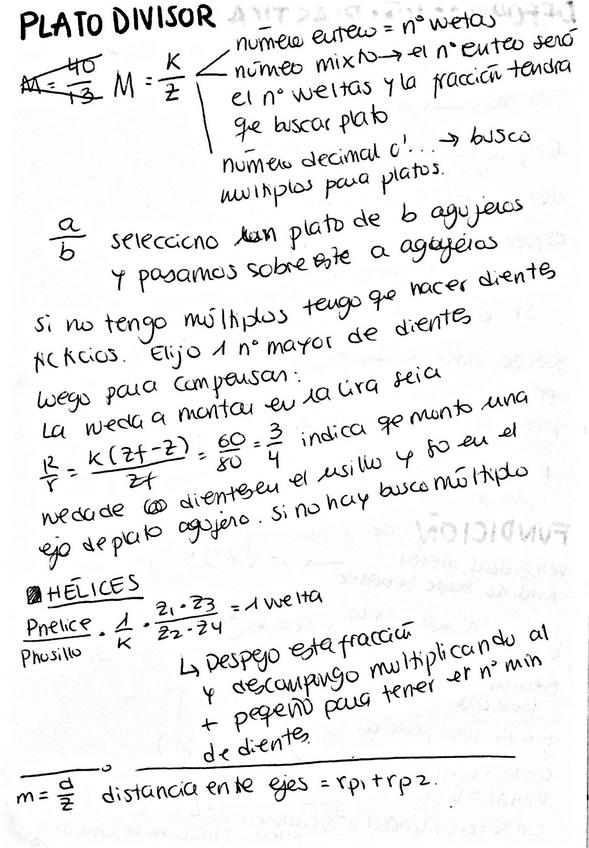 PLATO DIVISOR
M = 40/13 M = K/Z
número entero = nº vueltas
número mixto → el nº entero será
el nº vueltas y la fracción tendra
que buscar plato
número decimal 0'... → busco
multiplos para platos.
a/b selecciono un plato de b agujeros
y pasamos sobre este a agujeros
si no tengo múltiplos tengo que hacer dientes
ficticios. Elijo 1 nº mayor de dientes
luego para compensar:
La rueda a montar en la lira seria
R/r = K(Zf-Z)/Zf = 60/80 = 3/4 indica que monto una
rueda de 60 dientes en el usillo y 80 en el
eje de plato agujero. Si no hay busco múltiplo
HÉLICES
Phelice/Phusillo · 1/K · Z1·Z3/Z2·Z4 = 1 vuelta
↳ Despejo esta fracción
y descompongo multiplicando al
+ pequeño para tener el nº min
de dientes.
m = d/z distancia entre ejes = rp1 + rp2.